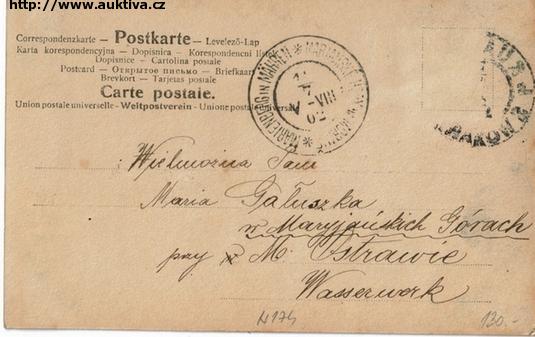 http://www.auktiva.cz
Correspondenzkarte – Postkarte – Levelező-Lap
Karta korespondencyjna – Dopisnica – Korespondencni lístek
Dopisnice – Cartolina postale
Postcard – Открытое письмо – Briefkaart
Brevkort – Tarjetas postale
Carte postale.
Union postale universelle – Weltpostverein – Unione postale universale
MARIENBERG IN MÄHREN * MARIANSKÉ HORY
VIII
KRAKÓW
Wielmożna Pani
Maria Gałuszka
w Maryjańskich Górach
przy M. Ostrawie
Wasserwerk
N174
130.-